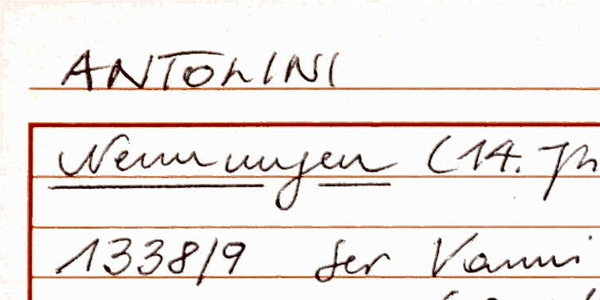 ANTOLINI
Nennungen (14. Jh
1338/9 Ser Vanni